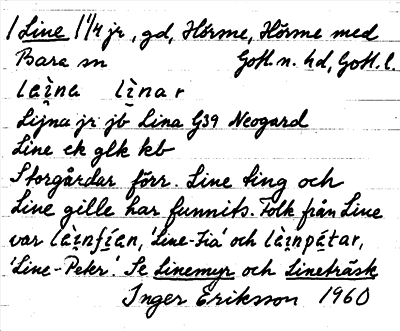 1 Line 1 1/4 jr, gd, Hörme, Hörme med
Bara sn Gotl. n. hd, Gotl. l.
la̱ì̱na lì̱nar
Lijna jr jb Lina G39 Neogard
Line ek glk kb
Storgårdar förr. Line ting och
Line gille har funnits. Folk från Line
var là̱i̱nfí̱an, 'Line-Fia' och là̱i̱npé̱tar,
'Line-Peter'. Se Linemyr och Lineträsk
Inger Eriksson 1960